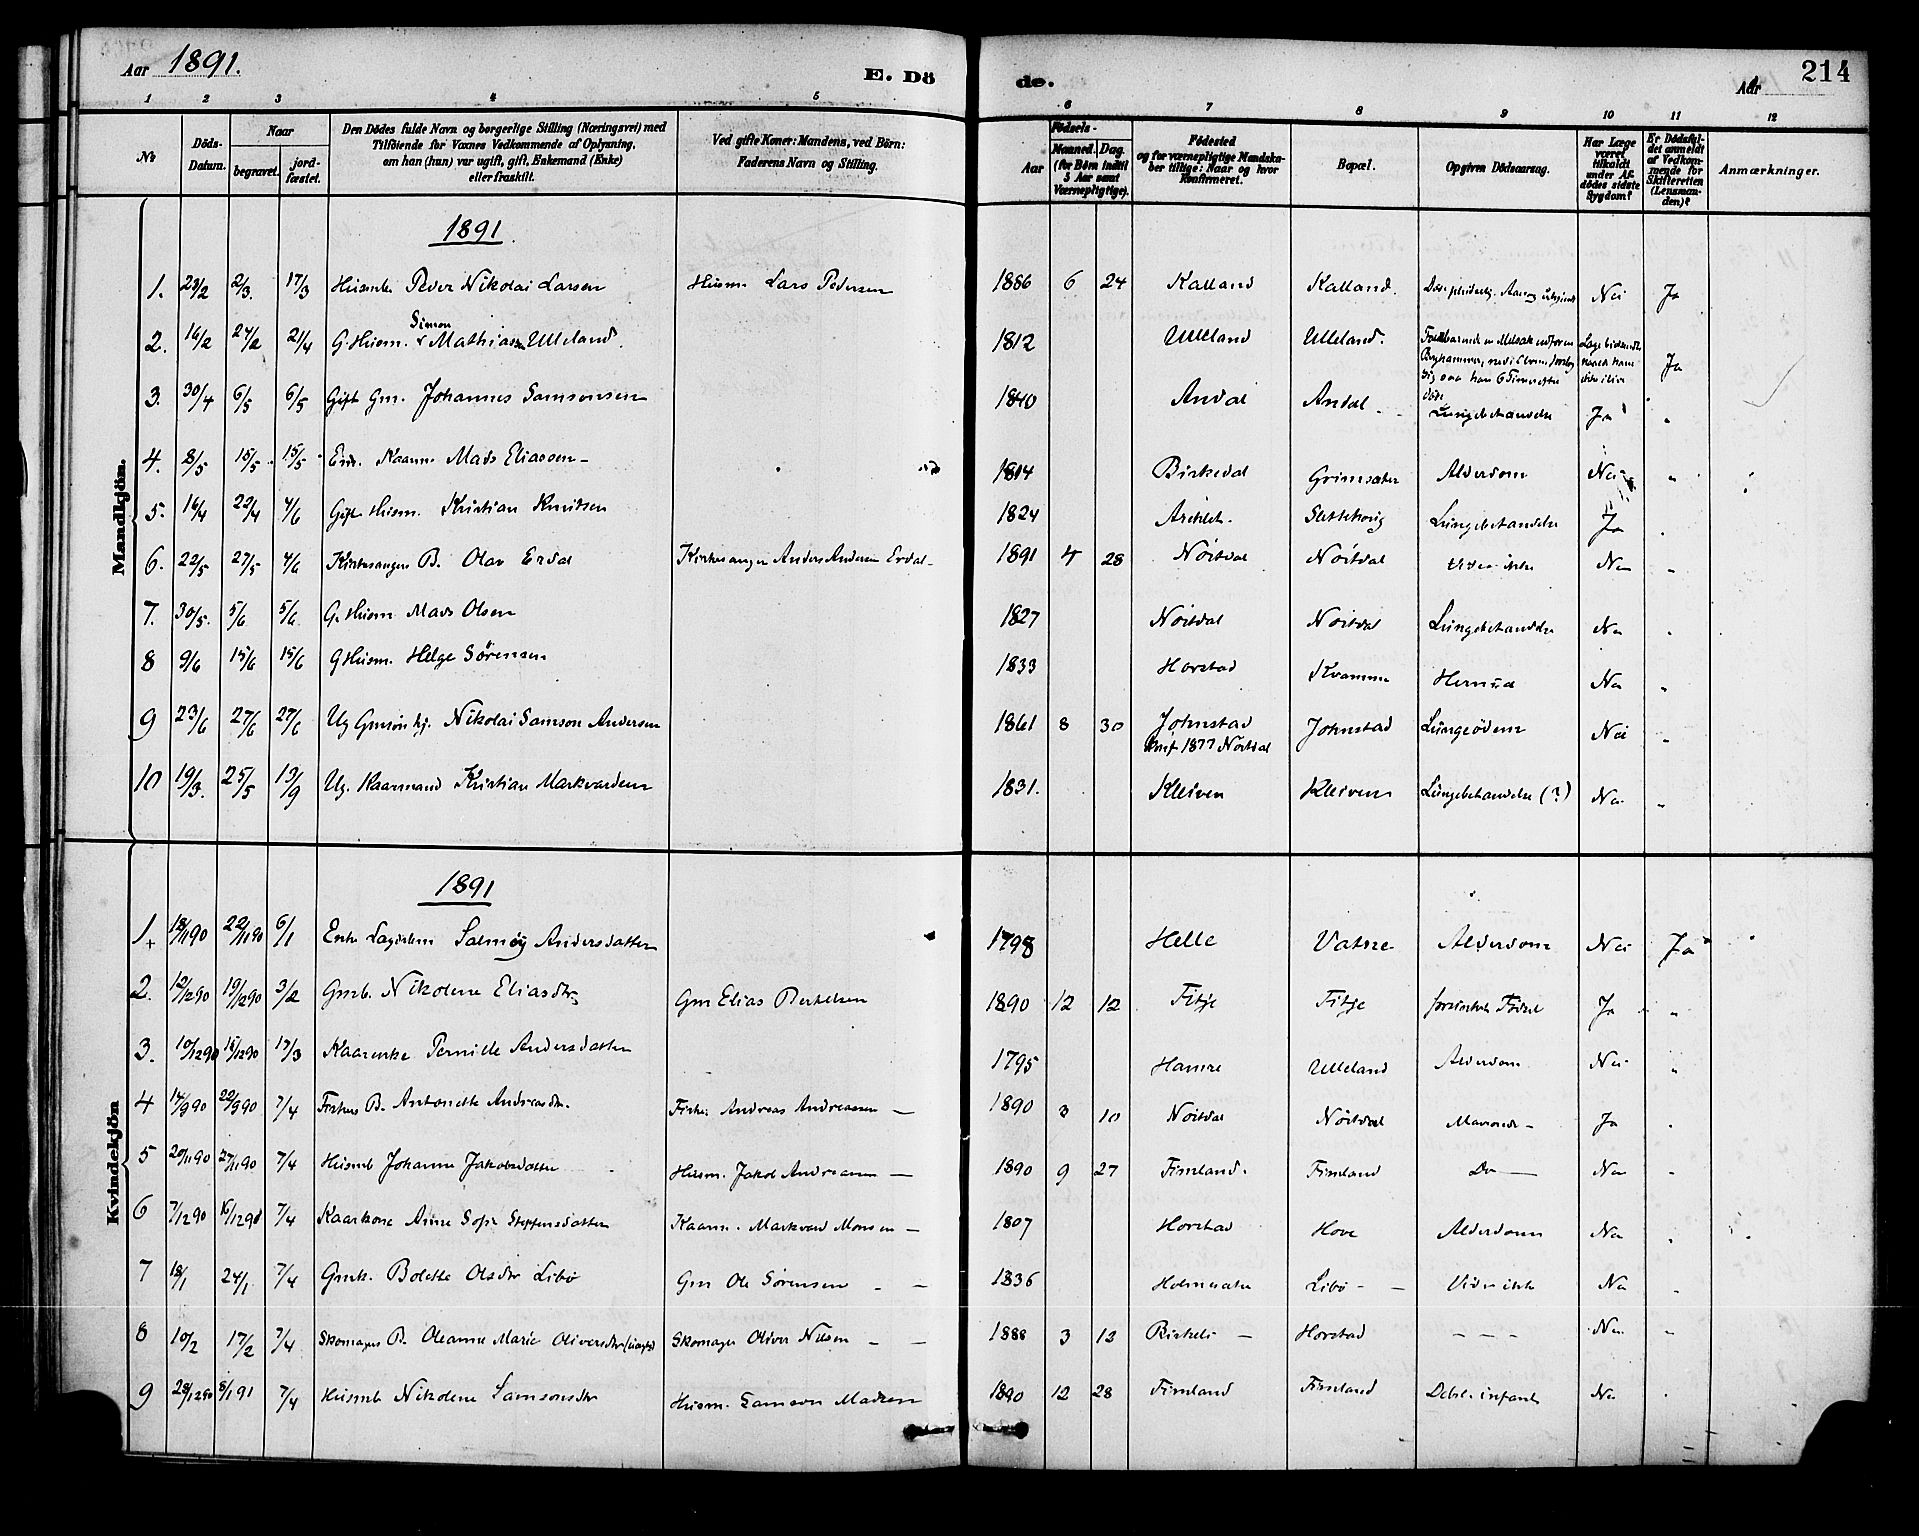 Aar 1891. E. Dö de. Aar 214
1 2 3 4 5 6 7 8 9 10 11 12
No Döds-Datum. Naar begravet. jord-fæstet. Den Dödes fulde Navn og borgerlige Stilling (Næringsvei) med Tilföiende for Voxnes Vedkommende af Oplysning, om han (hun) var ugift, gift, Enkemand (Enke) eller fraskilt. Ved gifte Koner: Mandens, ved Börn: Faderens Navn og Stilling. Födsels- Aar Maaned. Dag. (for Börn indtil 5 Aar samt Værnepligtige). Födested og for værnepligtige Mandska-ber tillige: Naar og hvor Konfirmeret. Bopæl. Opgiven Dödsaarsag. Har Læge været tilkaldt under Af-dödes sidste Sygdom? Er Dödsfal-det anmeldt af Vedkom-mende for Skifteretten (Lensman-den)? Anmærkninger.
Mandkjön.
1891.
1. 23/2 2/3. 17/3 Husmb. Peder Nikolai Larsen Husm. Lars Pedersen 1886 6 24 Kalland Kalland. Nei Ja
2. 16/2 24/2 21/4 G. Husm. Simon Mathiassen Ulleland. 1812 Ulleland Ulleland. Ja
3. 30/4 6/5 6/5 Gift Gm. Johannes Samsonsen 1840 Andal Andal - Lungebetændelse Ja "
4. 8/5 15/5 15/5 Enk. Kaarm. Mads Eliassen - 1814 Birkedal Grimsæter Alderdom Nei "
5. 16/4 22/4 4/6 Gift Husm. Kristian Knutsen 1824 Lungebetændelse Ja "
6. 22/5 27/5 4/6 Kirkesangers B. Olav Erdal Kirkesanger Anders Andersen Erdal - 1891 4 28 Nöitdal Nöitdal Vides ikke Nei "
7. 30/5. 5/6 5/6 G. Husm Mads Olsen 1827 Nöitdal Nöitdal Lungebetændelse Nei "
8 9/6 15/6 15/6 G Husm. Helge Sörensen 1833 Horstad Kvamme Nei "
9 23/6 27/6 27/6 Ug Gmsön hj. Nikolai Samson Andersen 1861 8 30 Johnstad Konf 1877 Nöitdal Johnstad Lungeödem Nei "
10 19/3. 25/5 13/9 Ug. Kaarmand Kristian Markvardsen 1831. Kleiven Kleiven Lungebetændelse (?) Nei "
Kvindekjön
1891
1 18/11 90 22/11 90 6/1 Enke Lægdslem Salmöy Andersdatter 1798 Helle Vatne Alderdom Nei Ja
2. 12/12 90 19/12 90 3/2 Gmb. Nikoline Eliasdtr Gm Elias Bertelsen 1890 12 12 Fitje Fitje Födsel Ja "
3. 10/12 90 16/12 90 17/3 Kaarenke Pernille Andersdatter 1795 Hamre Ulleland Alderdom Nei "
4 14/9 90 22/9 90 7/4 Fiskers B. Antonette Andreasdtr. Fisker Andreas Andreassen - 1890 3 10 Nöitdal Nöitdal Ja "
5 20/11 90 27/11 90 7/4 Husmb Johanne Jakobsdatter Husm. Jakob Andreassen - 1890 9 27 Fimland. Fimland Do - Nei "
6 7/12 90 16/12 90 7/4 Kaarkone Anne Sofie Steffensdatter Kaarm. Markvard Monsen - 1807 Horstad Hove Alderdom Nei "
7 18/1 24/1 7/4 Gmk. Bolette Olsdtr Libö Gm Ole Sörensen - - 1836 Holmesæter Libö - - Vides ikke Nei "
8 10/2 17/2 7/4 Skomagers B. Oleanne Marie Oliversdtr Skomager Oliver Nilsen - - 1888 3 12 Horstad - - - Nei "
9 28/12 90 8/1 91 7/4 Husmb Nikoline Samsonsdtr Husm. Samson Madsen 1890 12 28 Fimland Fimland Debil. infant Nei "